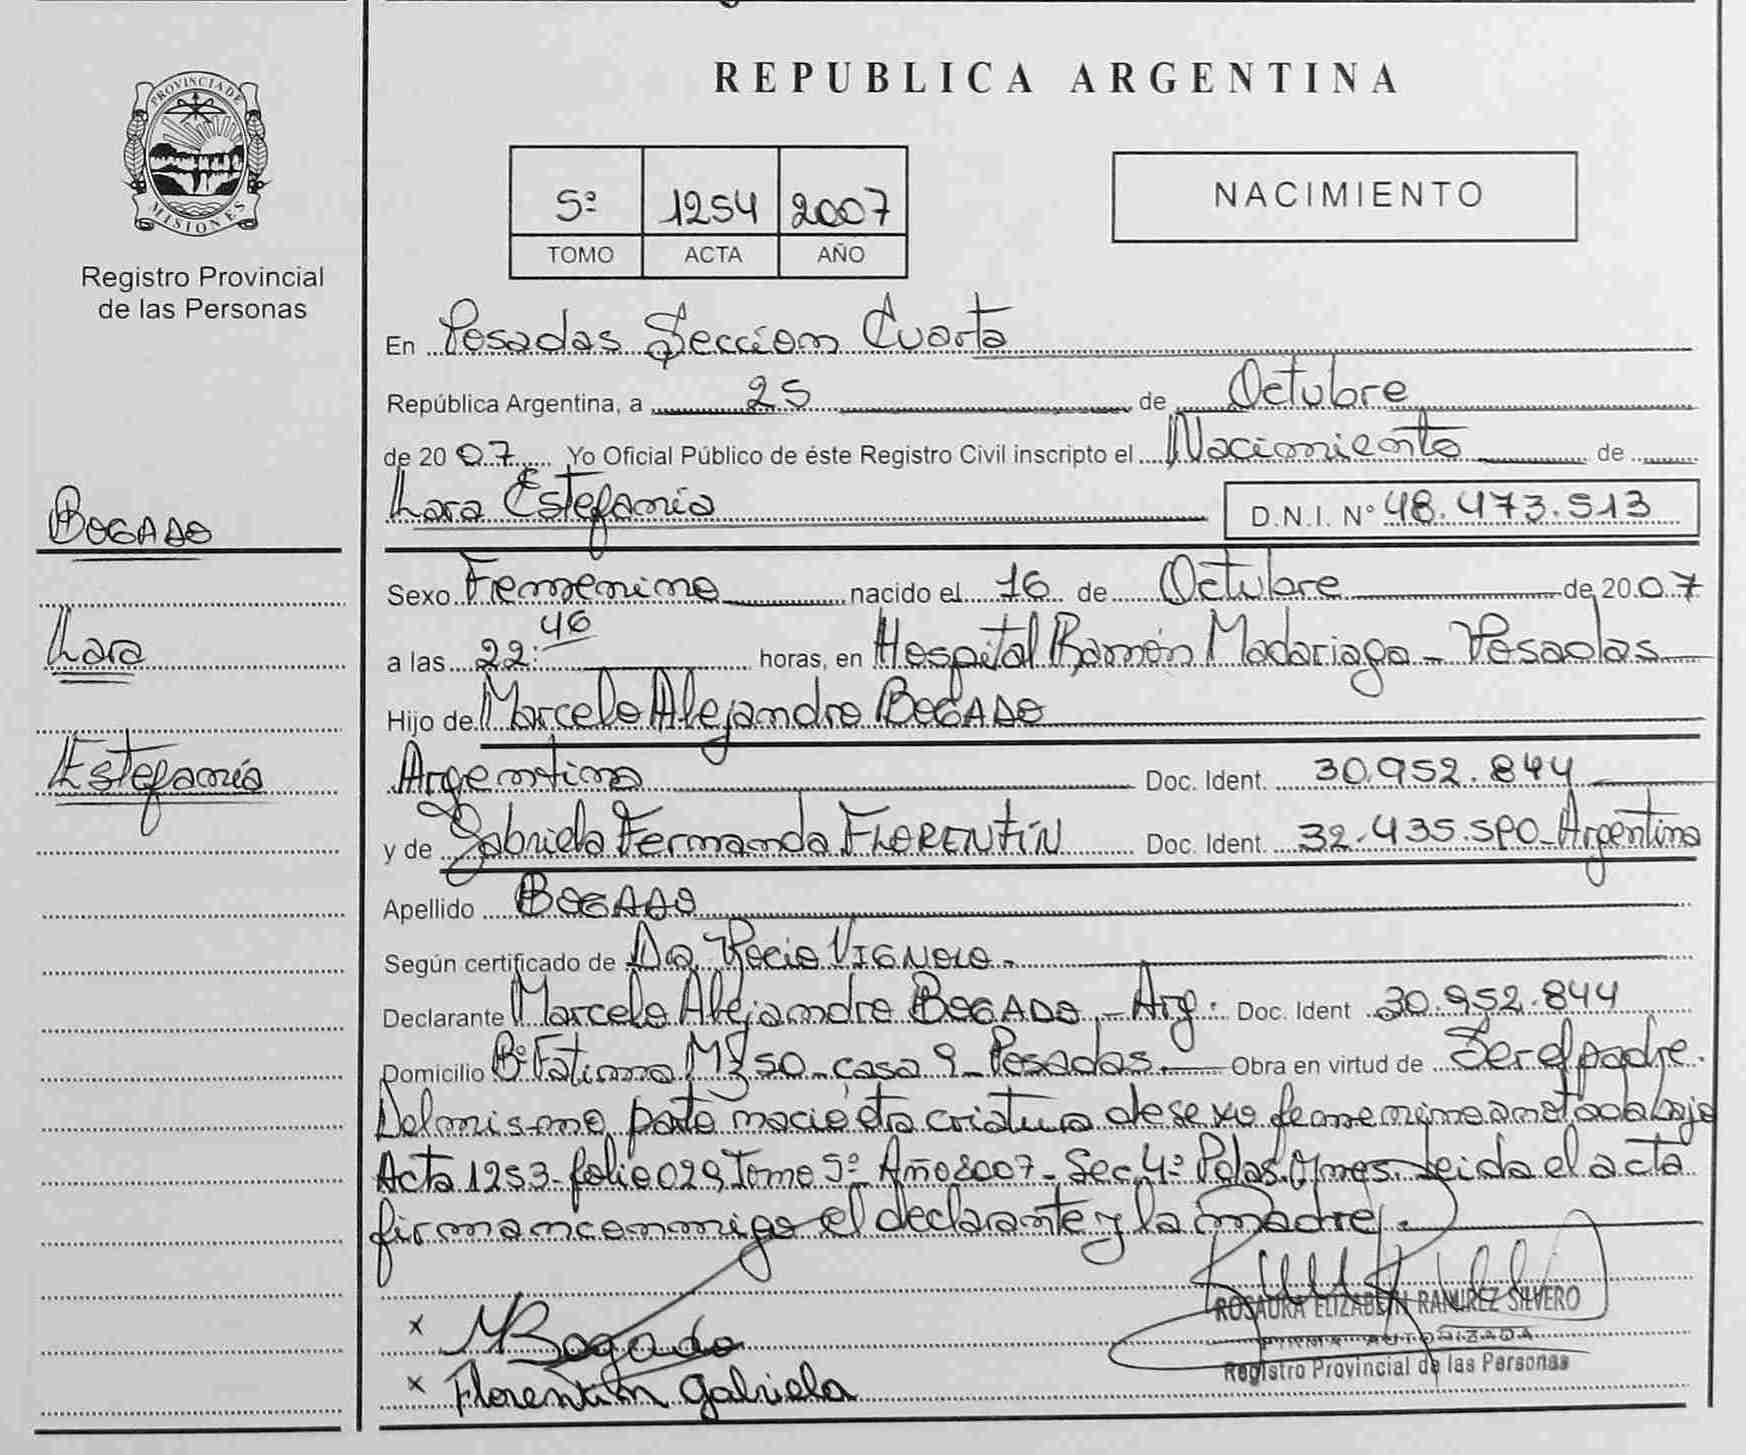 REPUBLICA ARGENTINA
PROVINCIA DE
MISIONES
Registro Provincial
de las Personas
5º 1254 2007
TOMO ACTA AÑO
NACIMIENTO
En Posadas Sección Cuarta
República Argentina, a 25 de Octubre
de 2007 Yo Oficial Público de éste Registro Civil inscripto el Nacimiento de
Lara Estefanía D.N.I. Nº 48.473.513
BOGADO
Lara
Estefanía
Sexo Femenino nacido el 16 de Octubre de 2007
a las 22:46 horas, en Hospital Ramón Madariaga - Posadas
Hijo de Marcelo Alejandro BOGADO
Argentino Doc. Ident. 30.952.844
y de Gabriela Fernanda FLORENTÍN Doc. Ident. 32.435. Argentina
Apellido BOGADO
Según certificado de Dra. Rocio VIGNOLO.
Declarante Marcelo Alejandro BOGADO - Arg. Doc. Ident 30.952.844
Domicilio Bº Fatima Mz 50 - casa 9 - Posadas. Obra en virtud de Ser el padre.
Del mismo parto nació otra criatura de sexo femenino anotada bajo
Acta 1253 - folio 029 Tomo 5º Año 2007 - Sec. 4º Pdas. Mnes. Leida el acta
firman conmigo el declarante y la madre.
x MBogado
x Florentin Gabriela
ROSAURA ELIZABETH RAMIREZ SILVERO
FIRMA AUTORIZADA
Registro Provincial de las Personas